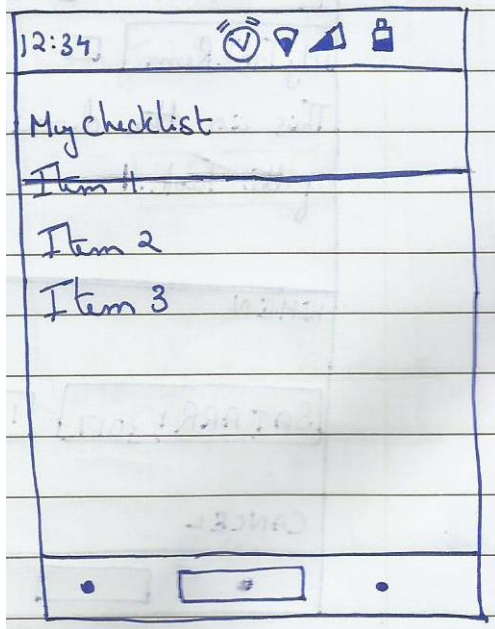 12:34
My Checklist
Item 1.
Item 2
Item 3